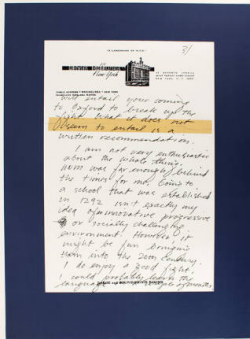 3/
New York
and entail your coming
to Oxford to break up the
fight. What it does not
seem to entail is a
written recommendation.
I am not very enthusiastic
about the whole thing.
was far enough behind
the times for me. Going to
a school that was established
in 1292 isn't exactly my
idea of innovative progressive
or socially challenging
environment. However it
might be fun bringing
them into the 20th century.
I do enjoy a good fight.
I could probably learn the
language